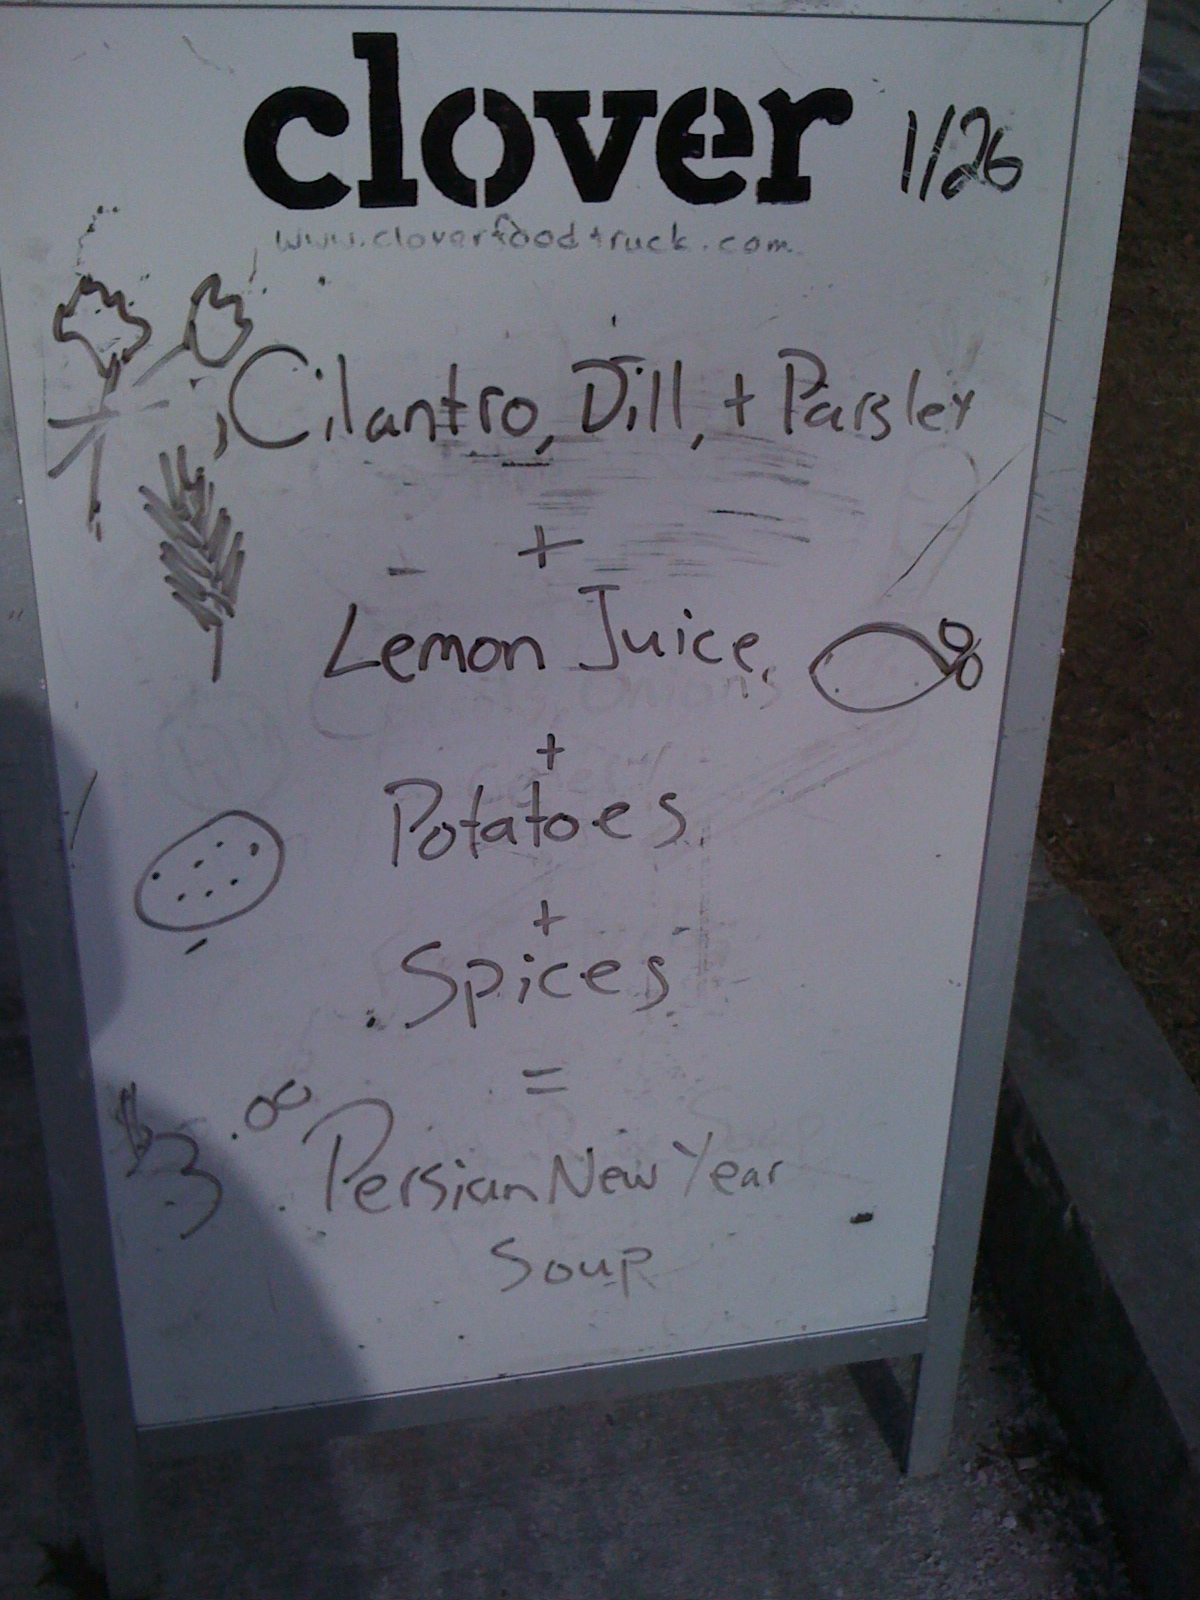 clover 1/26
www.cloverfoodtruck.com
Cilantro, Dill, + Parsley
+
Lemon Juice
+
Potatoes
+
Spices
=
$3.00 Persian New Year
Soup